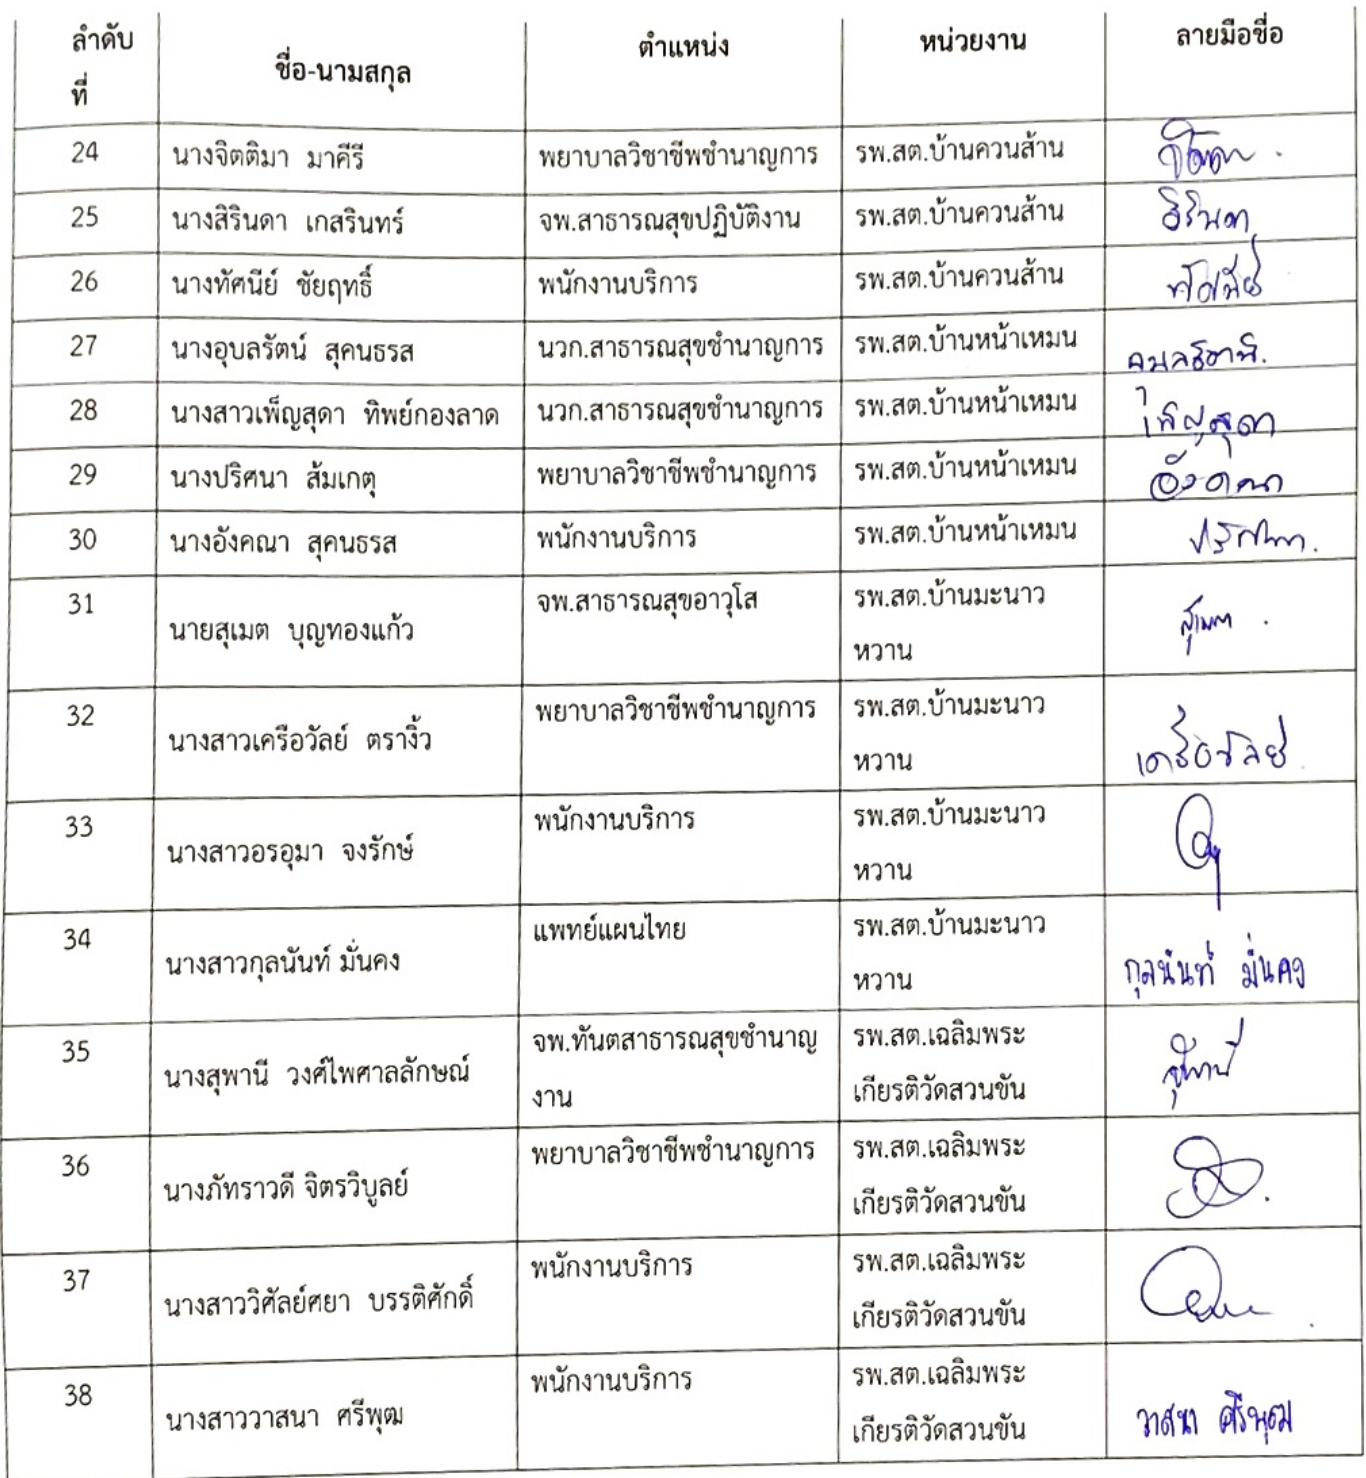 ลำดับ
ที่
ชื่อ-นามสกุล
ตำแหน่ง
หน่วยงาน
ลายมือชื่อ
24 นางจิตติมา มาคีรี พยาบาลวิชาชีพชำนาญการ รพ.สต.บ้านควนส้าน
25 นางสิรินดา เกสรินทร์ จพ.สาธารณสุขปฏิบัติงาน รพ.สต.บ้านควนส้าน สิรินดา
26 นางทัศนีย์ ชัยฤทธิ์ พนักงานบริการ รพ.สต.บ้านควนส้าน ทัศนีย์
27 นางอุบลรัตน์ สุคนธรส นวก.สาธารณสุขชำนาญการ รพ.สต.บ้านหน้าเหมน
28 นางสาวเพ็ญสุดา ทิพย์กองลาด นวก.สาธารณสุขชำนาญการ รพ.สต.บ้านหน้าเหมน เพ็ญสุดา
29 นางปริศนา ส้มเกตุ พยาบาลวิชาชีพชำนาญการ รพ.สต.บ้านหน้าเหมน อังคณา
30 นางอังคณา สุคนธรส พนักงานบริการ รพ.สต.บ้านหน้าเหมน ปริศนา
31 นายสุเมต บุญทองแก้ว จพ.สาธารณสุขอาวุโส รพ.สต.บ้านมะนาว สุเมต
หวาน
32 นางสาวเครือวัลย์ ตรางิ้ว พยาบาลวิชาชีพชำนาญการ รพ.สต.บ้านมะนาว เครือวัลย์
หวาน
33 นางสาวอรอุมา จงรักษ์ พนักงานบริการ รพ.สต.บ้านมะนาว
หวาน
34 นางสาวกุลนันท์ มั่นคง แพทย์แผนไทย รพ.สต.บ้านมะนาว กุลนันท์ มั่นคง
หวาน
35 นางสุพานี วงศ์ไพศาลลักษณ์ จพ.ทันตสาธารณสุขชำนาญ รพ.สต.เฉลิมพระ สุพานี
งาน เกียรติวัดสวนขัน
36 นางภัทราวดี จิตรวิบูลย์ พยาบาลวิชาชีพชำนาญการ รพ.สต.เฉลิมพระ
เกียรติวัดสวนขัน
37 นางสาววิศัลย์ศยา บรรติศักดิ์ พนักงานบริการ รพ.สต.เฉลิมพระ
เกียรติวัดสวนขัน
38 นางสาววาสนา ศรีพุฒ พนักงานบริการ รพ.สต.เฉลิมพระ วาสนา ศรีพุฒ
เกียรติวัดสวนขัน